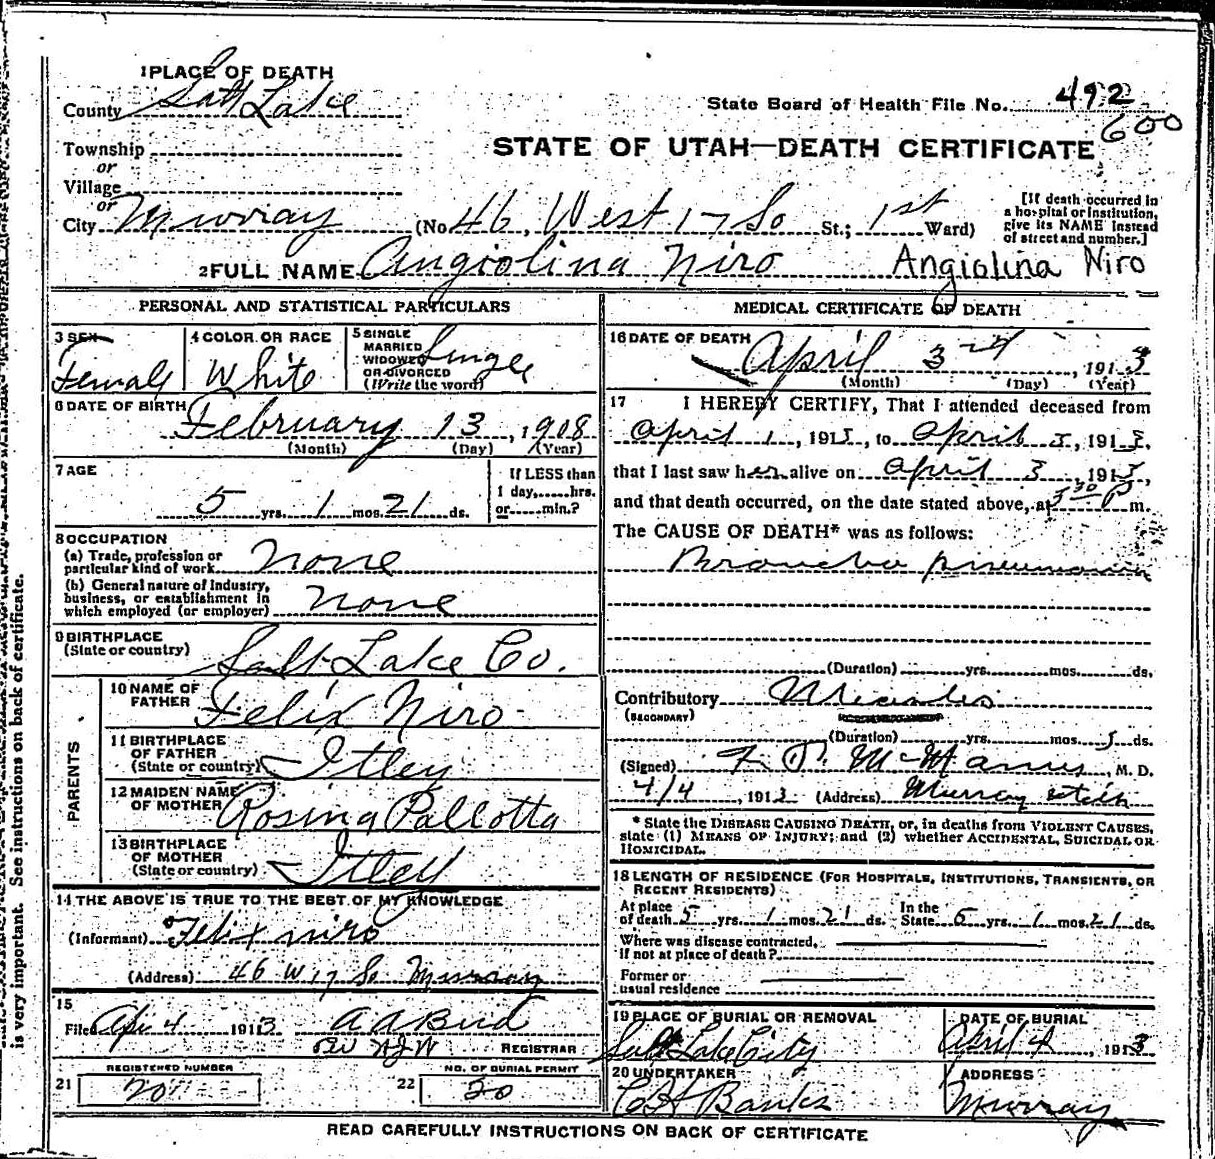 1 PLACE OF DEATH
County Salt Lake
State Board of Health File No. 492
600
Township
or
Village
or
City Murray (No. 46, West 17 So St.; 1st Ward)
STATE OF UTAH—DEATH CERTIFICATE
[If death occurred in
a hospital or institution,
give its NAME instead
of street and number.]
2 FULL NAME Angiolina Niro Angiolina Niro
PERSONAL AND STATISTICAL PARTICULARS
3 SEX
Female
4 COLOR OR RACE
White
5 SINGLE
MARRIED
WIDOWED
OR DIVORCED
(Write the word)
Single
6 DATE OF BIRTH February 13, 1908
(Month) (Day) (Year)
7 AGE
5 yrs. 1 mos. 21 ds.
If LESS than
1 day, hrs.
or min.?
8 OCCUPATION
(a) Trade, profession or
particular kind of work None
(b) General nature of industry,
business, or establishment in
which employed (or employer) None
9 BIRTHPLACE
(State or country) Salt Lake Co.
PARENTS
10 NAME OF
FATHER Felix Niro
11 BIRTHPLACE
OF FATHER
(State or country) Itley
12 MAIDEN NAME
OF MOTHER Rosina Pallotta
13 BIRTHPLACE
OF MOTHER
(State or country) Itley
14 THE ABOVE IS TRUE TO THE BEST OF MY KNOWLEDGE
(Informant) Felix Niro
(Address) 46 W 17 So Murray
15
Filed Apr 4 1913 A A Bird
REGISTRAR
REGISTERED NUMBER
21 20
NO. OF BURIAL PERMIT
22 20
MEDICAL CERTIFICATE OF DEATH
16 DATE OF DEATH
April 3rd, 1913
(Month) (Day) (Year)
17 I HEREBY CERTIFY, That I attended deceased from
April 1, 1913, to April 3, 1913,
that I last saw her alive on April 3, 1913,
and that death occurred, on the date stated above, at 5 30 P m.
The CAUSE OF DEATH* was as follows:
Broncho pneumonia
(Duration) yrs. mos. ds.
Contributory Measles
(SECONDARY)
(Duration) yrs. mos. 5 ds.
(Signed) McManus, M. D.
4/4, 1913 (Address) Murray Utah
* State the DISEASE CAUSING DEATH, or, in deaths from VIOLENT CAUSES,
state (1) MEANS OF INJURY; and (2) whether ACCIDENTAL, SUICIDAL OR
HOMICIDAL.
18 LENGTH OF RESIDENCE (FOR HOSPITALS, INSTITUTIONS, TRANSIENTS, OR
RECENT RESIDENTS)
At place
of death 5 yrs. 1 mos. 21 ds. In the
State 5 yrs. 1 mos. 21 ds.
Where was disease contracted,
if not at place of death?
Former or
usual residence
19 PLACE OF BURIAL OR REMOVAL
Salt Lake City
DATE OF BURIAL
April 4, 1913
20 UNDERTAKER
C H Banks
ADDRESS
Murray
READ CAREFULLY INSTRUCTIONS ON BACK OF CERTIFICATE
is very important. See instructions on back of certificate.